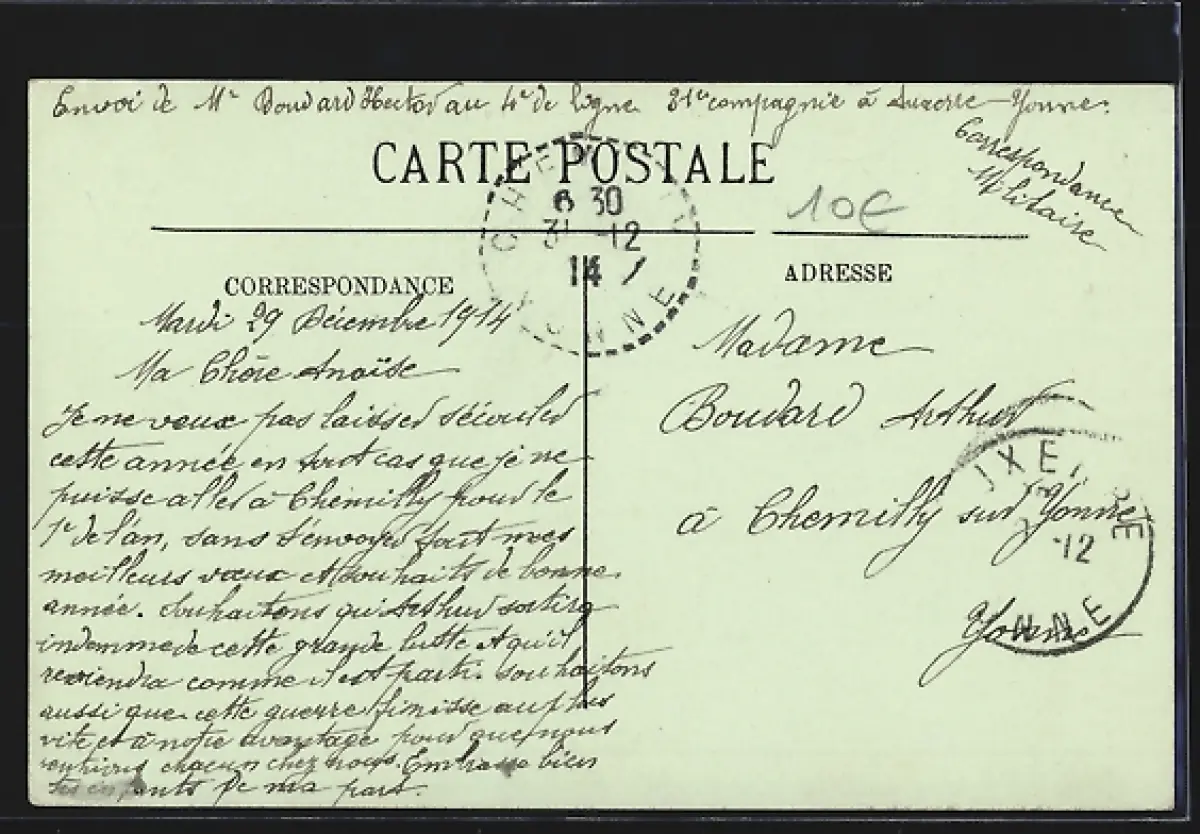 Envoi de Mr Boudard Hector au 4e de ligne 31e compagnie à Auxerre - Yonne.
Correspondance
Militaire
CARTE POSTALE
10€
6 30
31 -12
14
YONNE
CORRESPONDANCE
Mardi 29 Décembre 1914
Ma Chère Anaïse
Je ne veux pas laisser s'écouler
cette année en tout cas que je ne
puisse aller à Chemilly pour le
1e de l'an, sans t'envoyer tout mes
meilleurs vœux et souhaits de bonne
année. Souhaitons qu'Arthur sortira
indemme de cette grande lutte et qu'il
reviendra comme il est parti. Souhaitons
aussi que cette guerre finisse au plus
vite et à notre avantage pour que nous
rentrions chacun chez nous. Embrasse bien
tes enfants de ma part.
ADRESSE
Madame
Boudard Arthur
à Chemilly sur Yonne
Yonne
-12